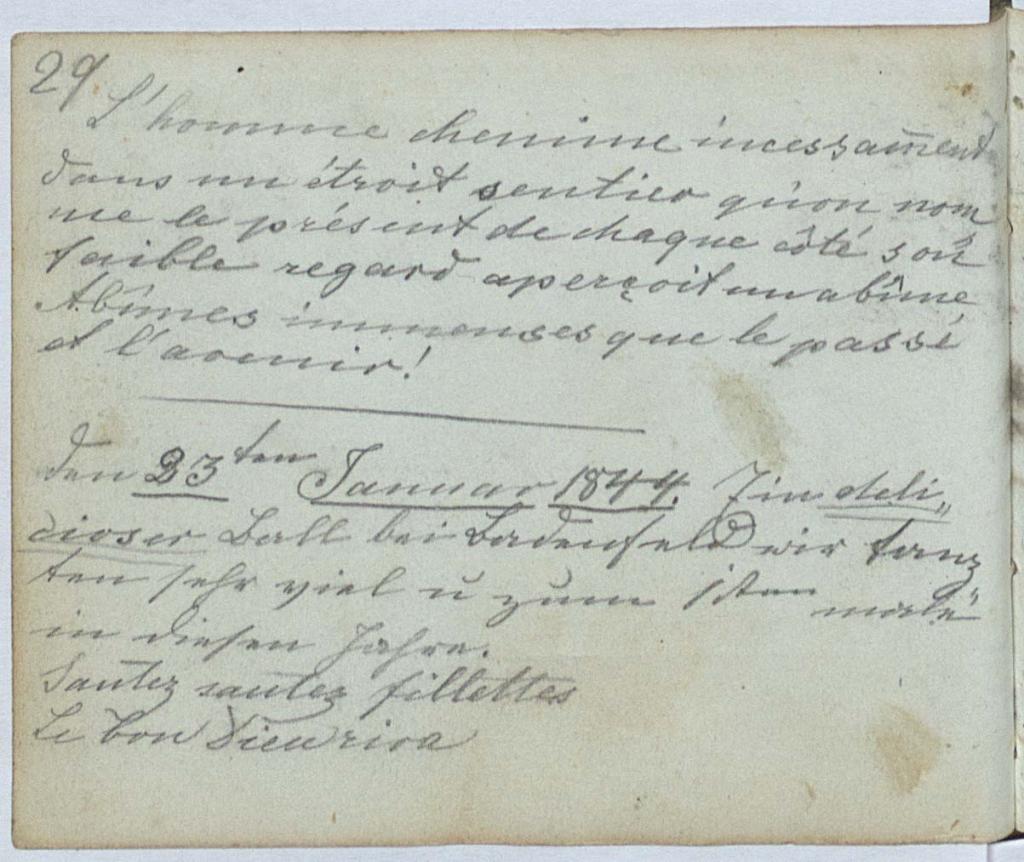 29
L'homme chemine incessam̅ent
dans un étroit sentier qu'on nom„
me le présent de chaque côté son
faible regard aperçoit un abîme,
Abîmes immenses que le passé
et l'avenir!
den 23ten Januar 1844. Ein deli„
cioser Ball bei Badenfeld wir tanz„
ten sehr viel u zum 1sten male
in diesen Jahre.
Sautez sautez fillettes
Le bon Dieu rira